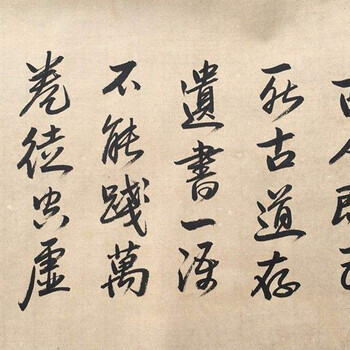 死古道存
遺書一語
不能踐萬
卷徒空虛